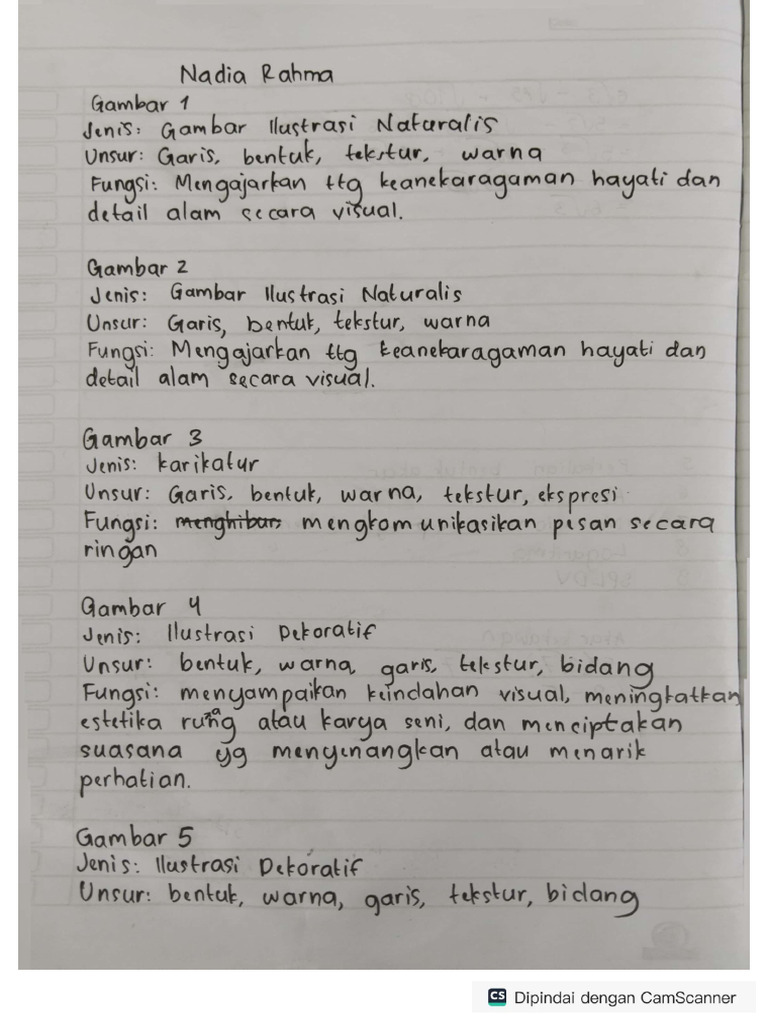 Nadia Rahma
Gambar 1
Jenis: Gambar Ilustrasi Naturalis
Unsur: Garis, bentuk, tekstur, warna
Fungsi: Mengajarkan ttg keanekaragaman hayati dan
detail alam secara visual.
Gambar 2
Jenis: Gambar Ilustrasi Naturalis
Unsur: Garis, bentuk, tekstur, warna
Fungsi: Mengajarkan ttg keanekaragaman hayati dan
detail alam secara visual.
Gambar 3
Jenis: karikatur
Unsur: Garis, bentuk, warna, tekstur, ekspresi
Fungsi: menghibur mengkomunikasikan pesan secara
ringan
Gambar 4
Jenis: Ilustrasi Dekoratif
Unsur: bentuk, warna, garis, tekstur, bidang
Fungsi: menyampaikan keindahan visual, meningkatkan
estetika ruang atau karya seni, dan menciptakan
suasana yg menyenangkan atau menarik
perhatian.
Gambar 5
Jenis: Ilustrasi Dekoratif
Unsur: bentuk, warna, garis, tekstur, bidang
CS Dipindai dengan CamScanner